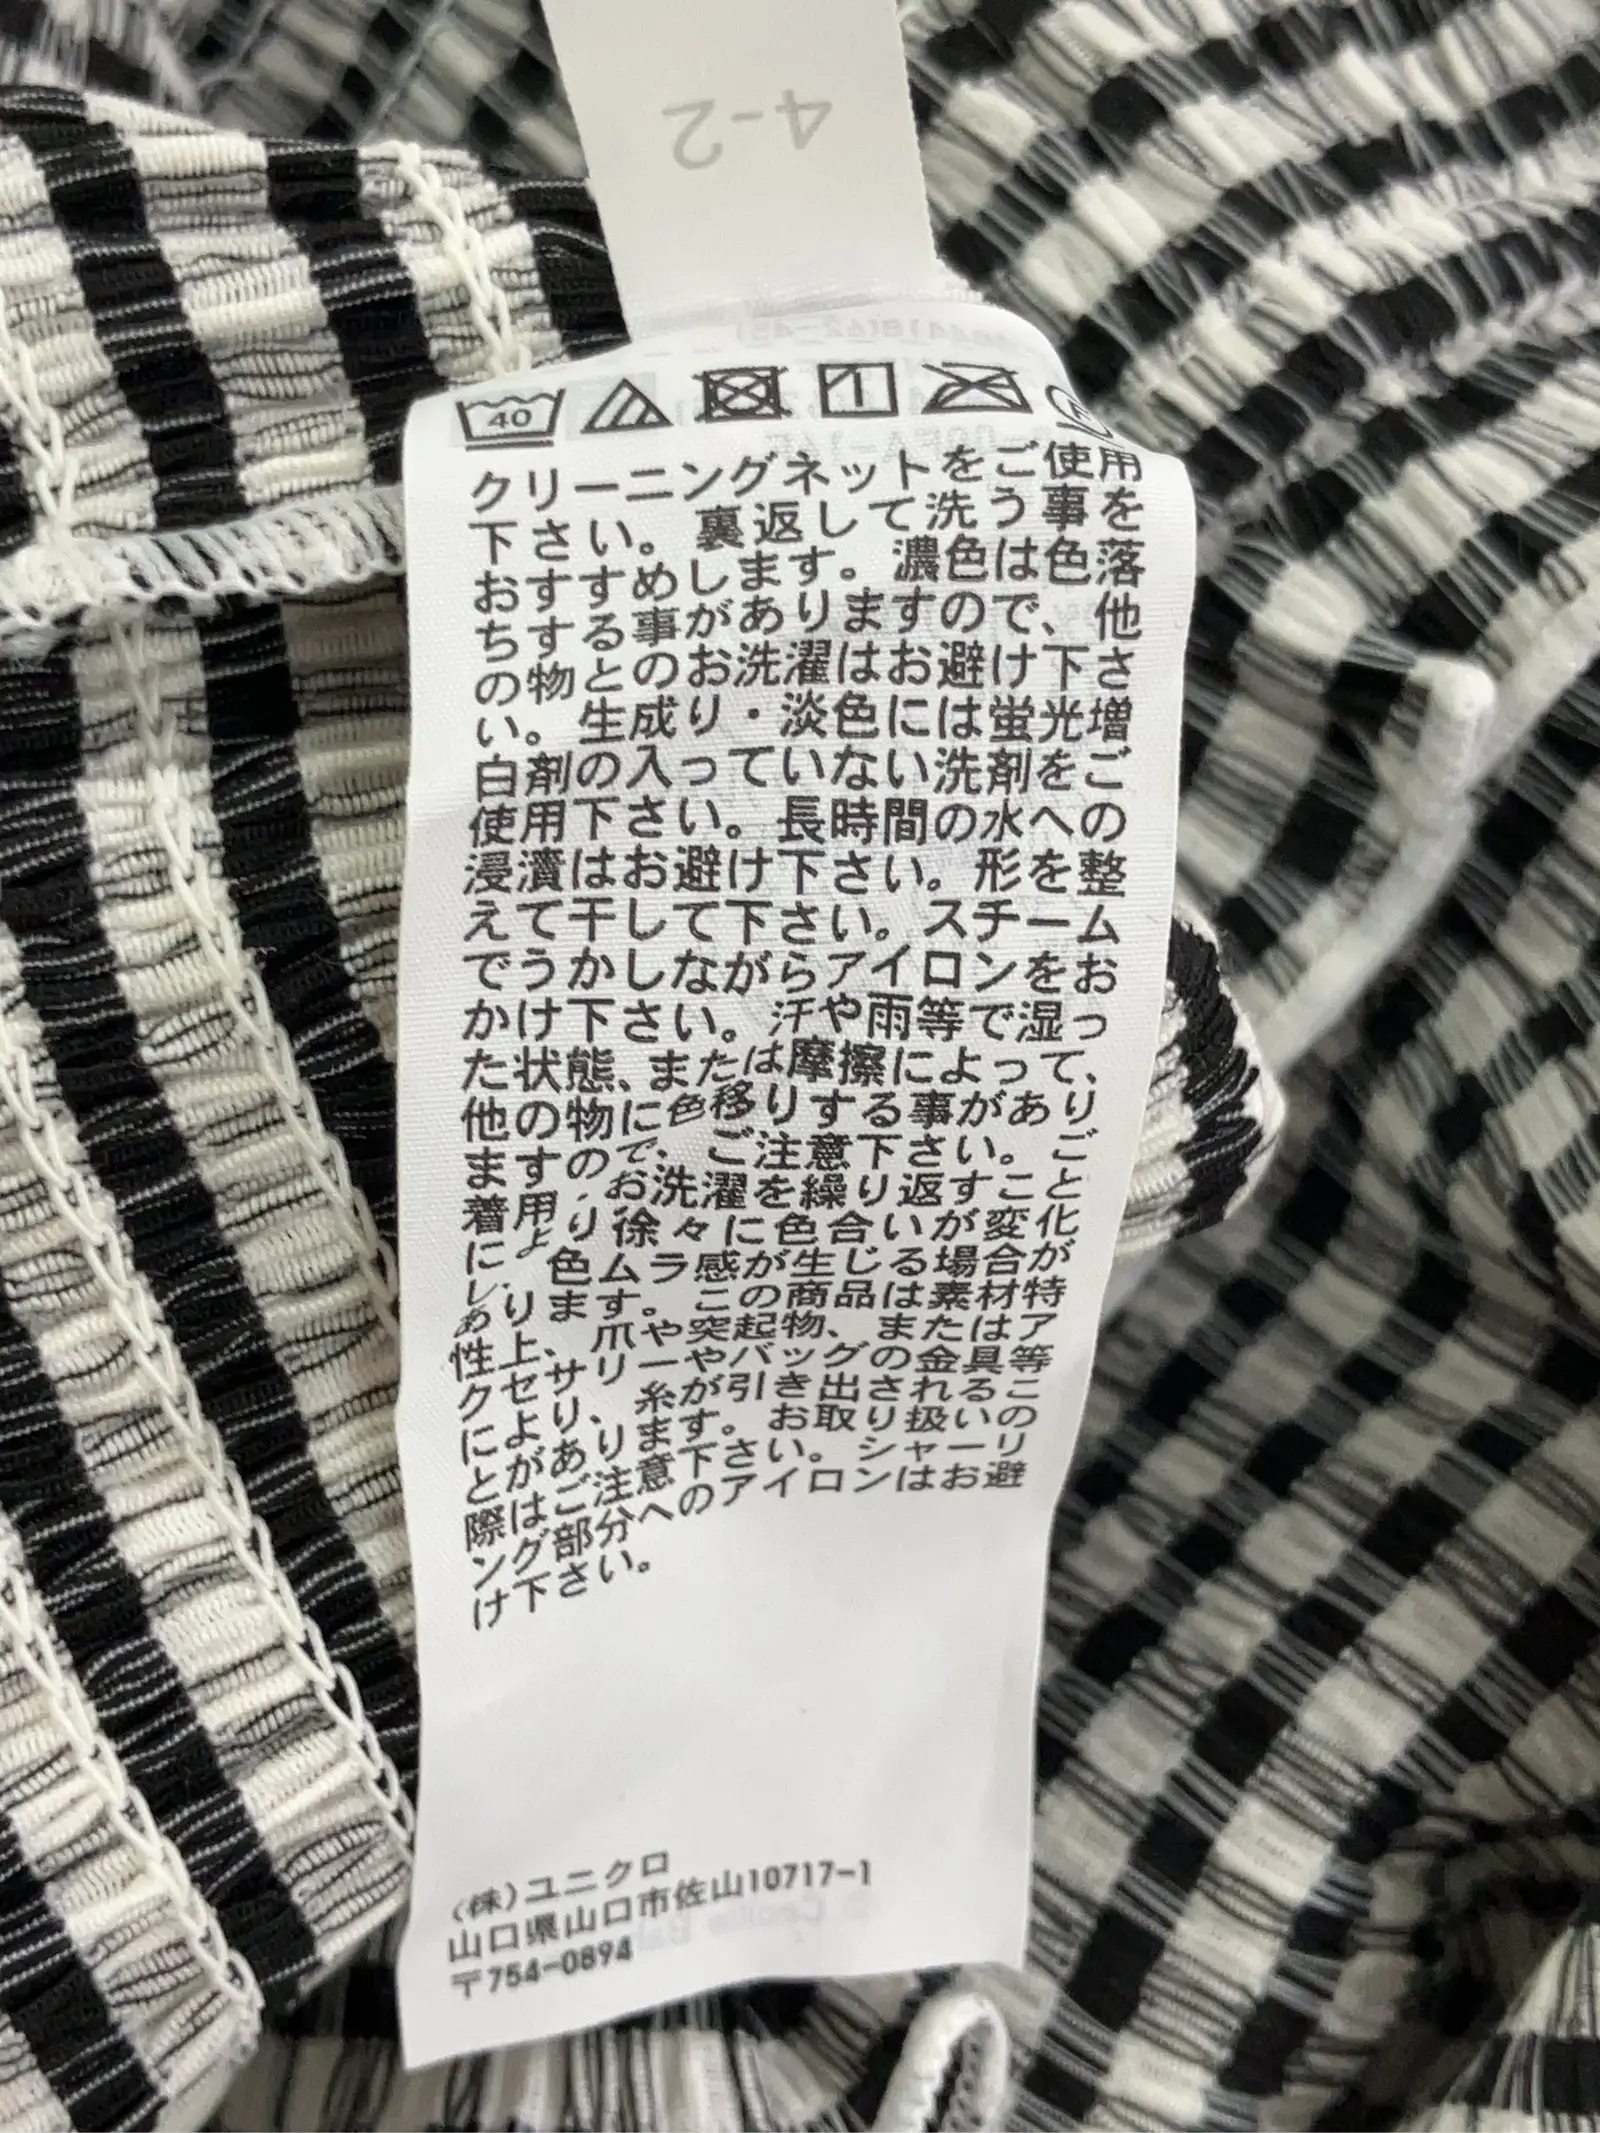 4-2
40
クリーニングネットをご使用
下さい。裏返して洗う事を
おすすめします。濃色は色落
ちする事がありますので、他
の物とのお洗濯はお避け下さ
い。生成り・淡色には蛍光増
白剤の入っていない洗剤をご
使用下さい。長時間の水への
浸漬はお避け下さい。形を整
えて干して下さい。スチーム
でうかしながらアイロンをお
かけ下さい。汗や雨等で湿っ
た状態、または摩擦によって、
他の物に色移りする事があり
ますので、ご注意下さい。ご
着用・お洗濯を繰り返すこと
により徐々に色合いが変化
し、色ムラ感が生じる場合が
あります。この商品は素材特
性上、爪や突起物、またはア
クセサリーやバッグの金具等
により、糸が引き出されるこ
とがあります。お取り扱いの
際はご注意下さい。シャーリ
ング部分へのアイロンはお避
け下さい。
(株)ユニクロ
山口県山口市佐山10717-1
〒754-0894